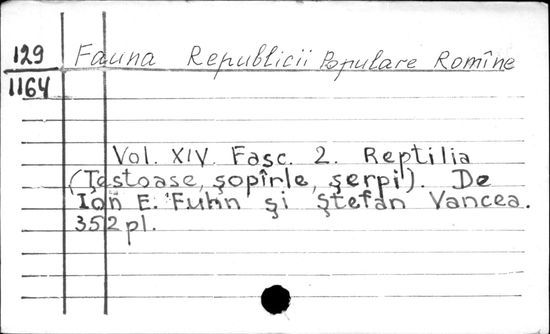 129
1164
Fauna Republicii Populare Romîne
Vol. XIV. Fasc. 2. Reptilia
(Țestoase, șopîrle, șerpi). De
Ion E. Fuhn și Ștefan Vancea.
352 pl.